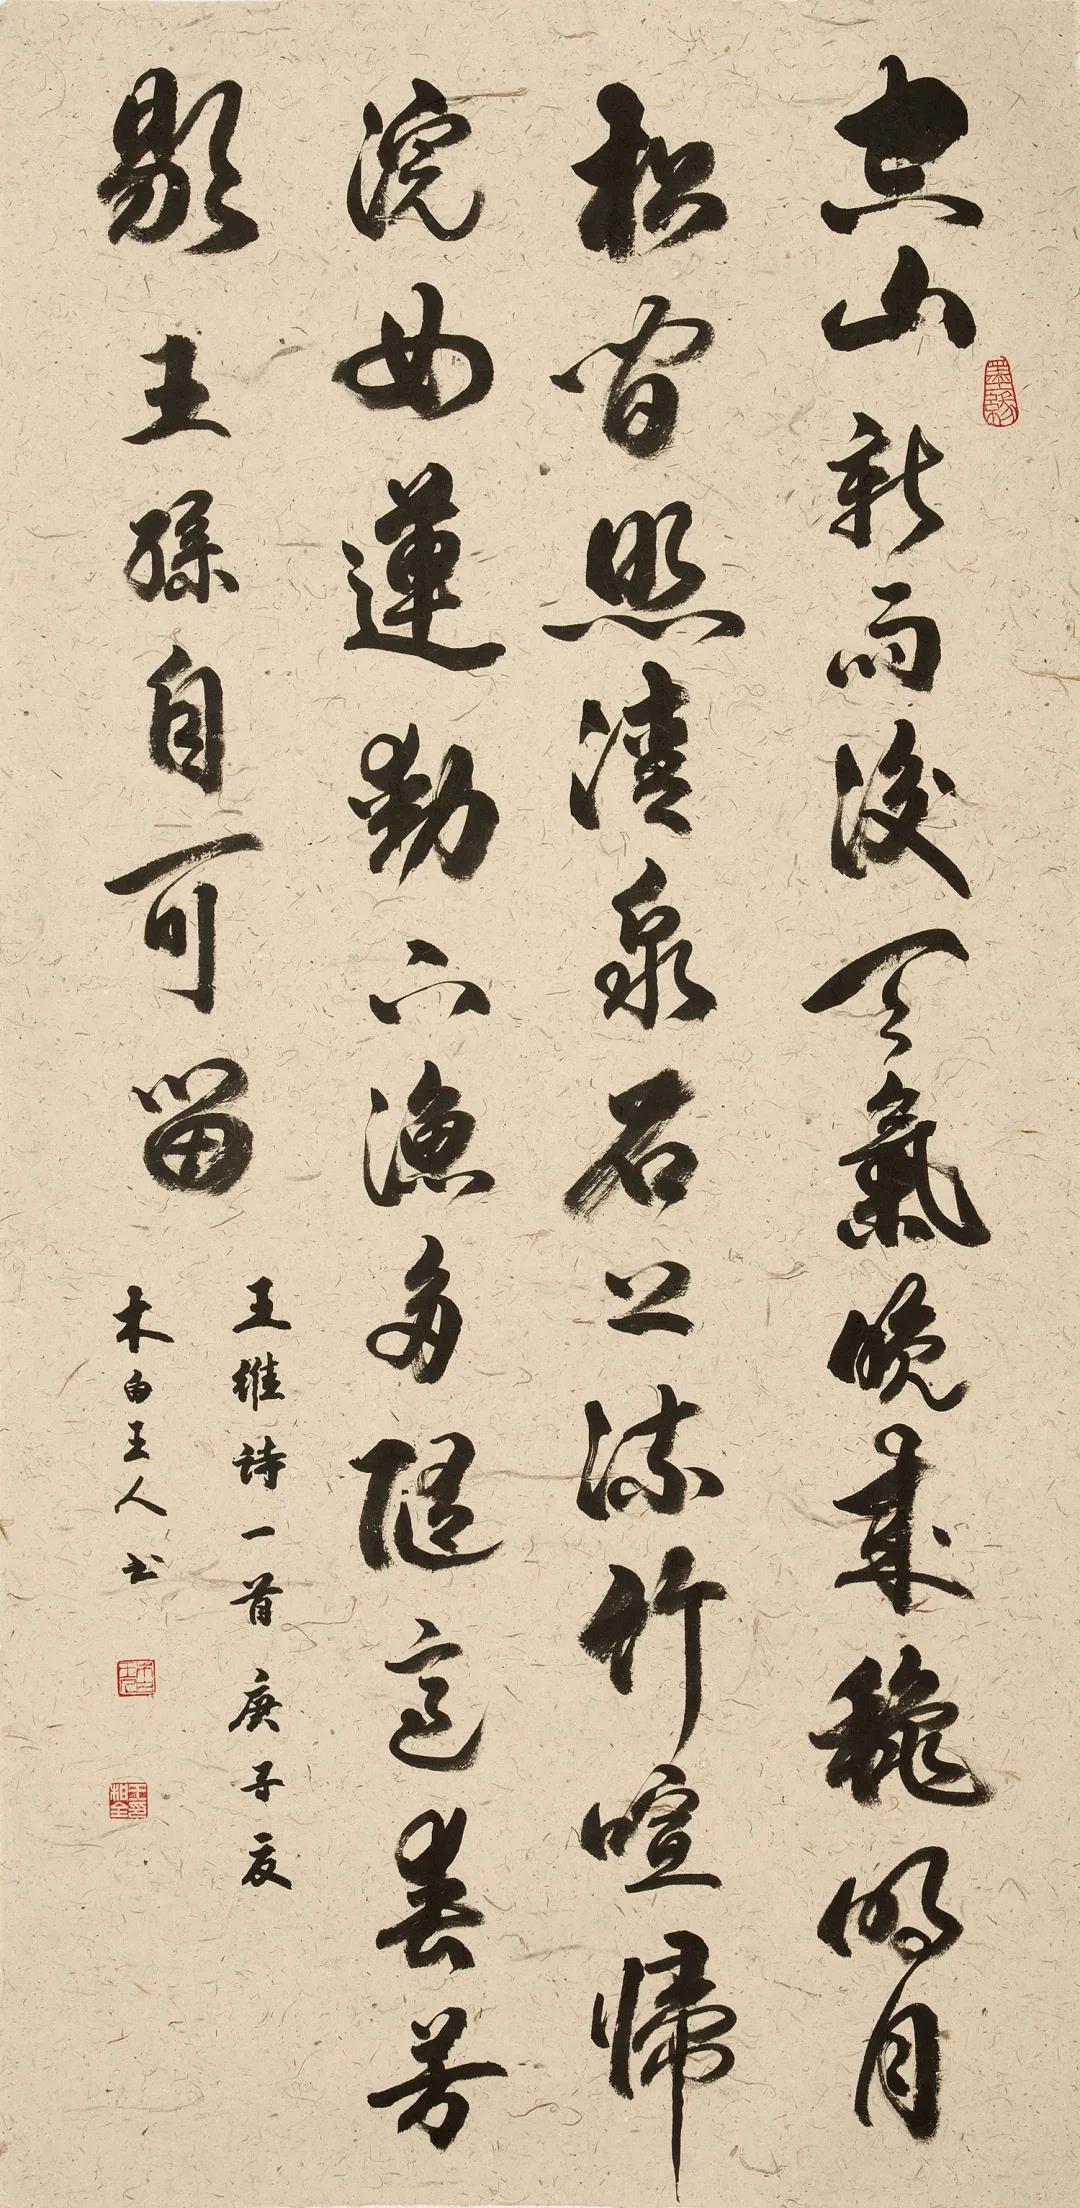 空山新雨後天氣晚來穐明月
松間照清泉石上流竹喧歸
浣女蓮動下漁舟隨意春芳
歇王孫自可留
王維詩一首庚子夏
木白王人书
墨緣
王印柏全